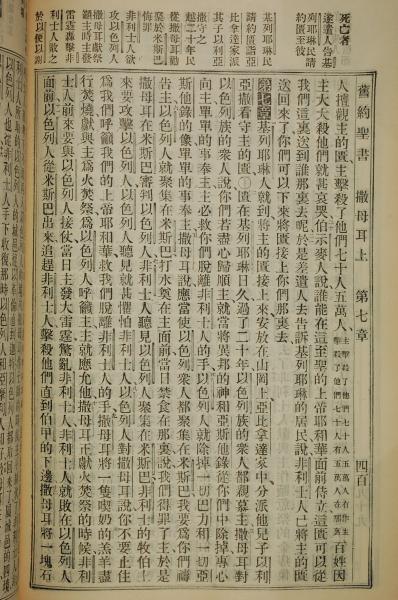 舊約聖書 撒母耳上 第七章 四百
死亡者
遂遣人告基
列耶琳民請
約匱至彼
基列耶琳民
請約匱詣亞
比拿達家派
其子以利亞
撒守之
越二十年民
從撒母耳勸
聚於米斯巴
悔罪
非利士人欲
攻以色列人
撒母耳獻祭
籲主時主發
雷霆轟擊非
利士人敗之
人擅觀主的匱主擊殺了他們七十人五萬人
百姓因
主大大殺他們就甚哀哭伯示麥人說誰能在這至聖的上帝耶和華面前侍立這匱可以從
我們這裏送到誰那裏去呢於是差遣人去告訴基列耶琳的居民說非利士人已將主的匱
送回來了你們可以下來將匱接上你們那裏去
第七章基列耶琳人就到將主的匱接上來安放在山岡上亞比拿達家中分派他兒子以利
亞撒看守主的匱匱在基列耶琳日久過了二十年以色列族的衆人都親慕主撒母耳對
以色列族的衆人說你們若盡心歸順主就當將異邦的神和亞斯他錄從你們中除掉專心
向主單單的事奉主主必救你們脫離非利士人的手以色列人就除掉一切巴力和一切亞
斯他錄的像單單的事奉主撒母耳說應當使以色列衆人都聚集在米斯巴我要爲你們禱
告主以色列人就聚集在米斯巴打水奠在主面前當日禁食在那裏說我們得罪了主於是
撒母耳在米斯巴審判以色列人非利士人聽見以色列人聚集在米斯巴非利士的牧伯上
來要攻擊以色列人以色列人聽見就甚懼怕非利士人以色列人對撒母耳說你不要止住
爲我們呼籲我們的上帝耶和華救我們脫離非利士人的手撒母耳將一隻喫奶的羔羊盡
行焚燒獻與主爲火焚祭爲以色列人呼籲主主就應允他撒母耳正獻火焚祭的時候非利
士人前來要與以色列人接仗當日主發大雷霆驚亂非利士人非利士人就敗在以色列人
面前以色列人從米斯巴出來追趕非利士人擊殺他們直到伯甲的下邊撒母耳將一塊石